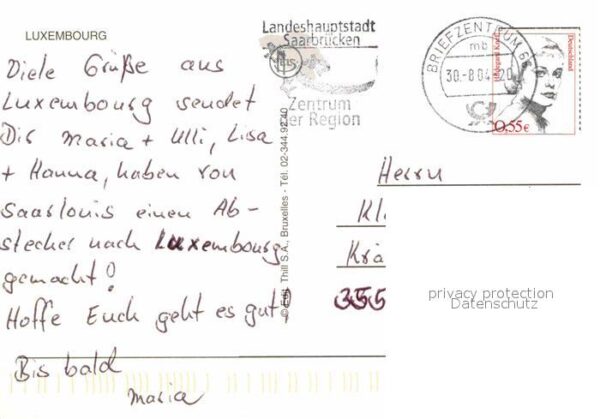 LUXEMBOURG
Viele Grüße aus
Luxembourg sendet
Dir Maria + Ulli, Lisa
+ Hanna, haben von
Saarlouis einen Ab-
stecher nach Luxembourg
gemacht!
Hoffe Euch geht es gut!
Bis bald
Maria
© Edit. Thill S.A., Bruxelles - Tél. 02-344.92.40
Landeshauptstadt
Saarbrücken
Zentrum
der Region
BRIEFZENTRUM 6
mb
30.-8.04-20
Deutschland
0,55€
Herrn
Kl
Krä
355
privacy protection
Datenschutz